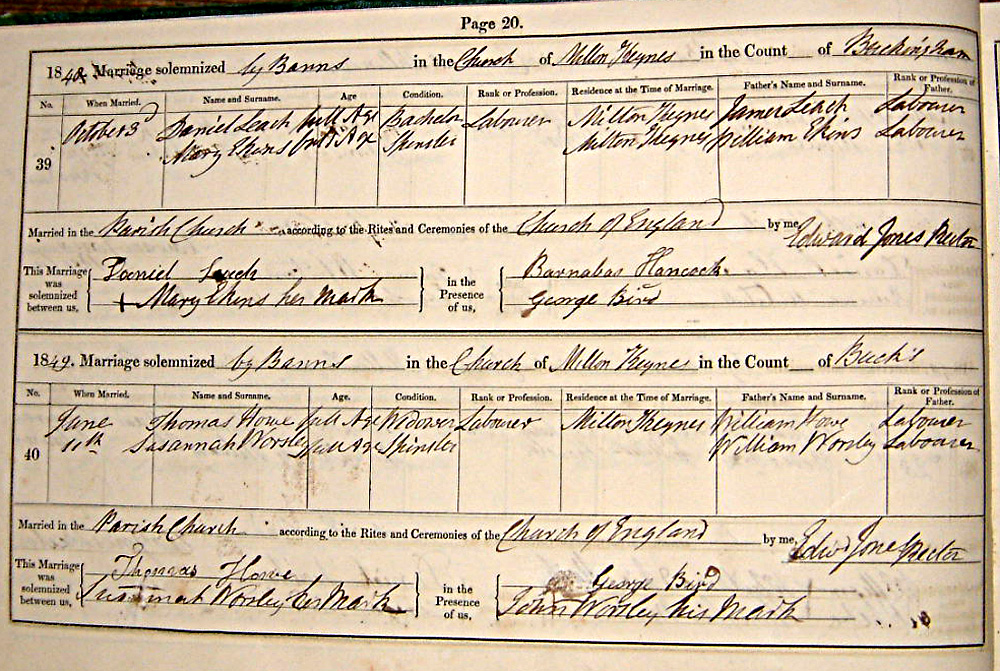 Page 20.
1848. Marriage solemnized by Banns in the Church of Milton Keynes in the Count of Buckingham
No. When Married. Name and Surname. Age Condition. Rank or Profession. Residence at the Time of Marriage. Father's Name and Surname. Rank or Profession of Father.
39 October 3d Daniel Leach full Age Bachelor Labourer Milton Keynes James Leach Labourer
Mary Ekins full Age Spinster Milton Keynes William Ekins Labourer
Married in the Parish Church according to the Rites and Ceremonies of the Church of England by me, Edward Jones Rector
This Marriage was solemnized between us, Daniel Leach in the Presence of us, Barnabas Hancock
+ Mary Ekins her Mark George Bird
1849. Marriage solemnized by Banns in the Church of Milton Keynes in the Count of Buck's
No. When Married. Name and Surname. Age. Condition. Rank or Profession. Residence at the Time of Marriage. Father's Name and Surname. Rank or Profession of Father.
40 June Thomas Howe full Age Widower Labourer Milton Keynes William Howe Labourer
11th Susannah Worsley full Age Spinster William Worsley Labourer
Married in the Parish Church according to the Rites and Ceremonies of the Church of England by me, Edwd Jones Rector
This Marriage was solemnized between us, Thomas Howe in the Presence of us, George Bird
Susannah Worsley her Mark John Worsley his Mark